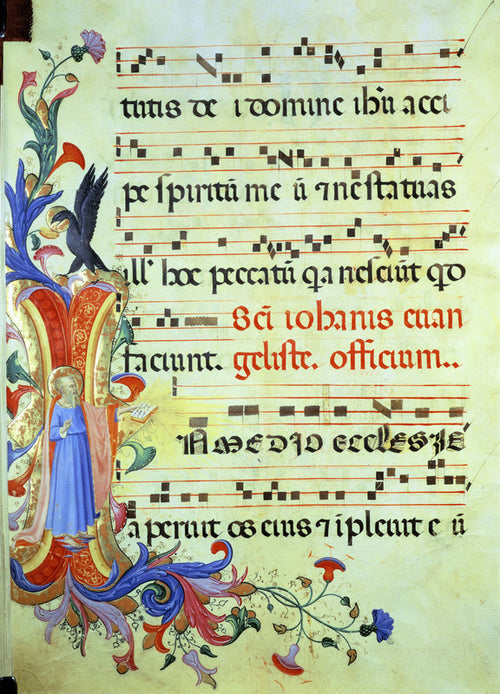 tutis de i domine ihū acci
pe spiritū me ū ⁊ ne statuas
ill' hoc peccatū q̄a nesciūt q̄d
faciunt. Sc̄i iohanis euan
geliste. officium..
IN MEDIO ECCLESIE
aperuit os eius ⁊ īpleuit e ū